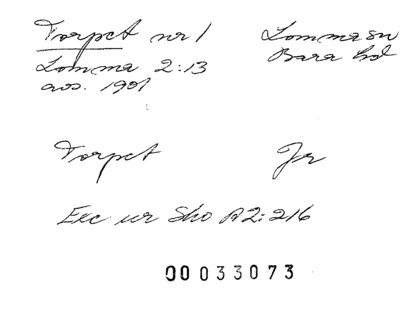 Torpet nr 1 Lomma sn
Lomma 2:13 Bara hd
avs. 1901
Torpet Jr
Exc ur Sko A2:216
00033073